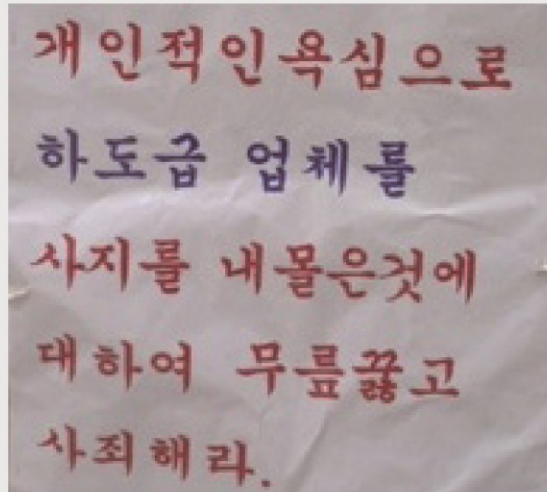 개인적인욕심으로
하도급 업체를
사지를 내몰은것에
대하여 무릎꿇고
사죄해라.